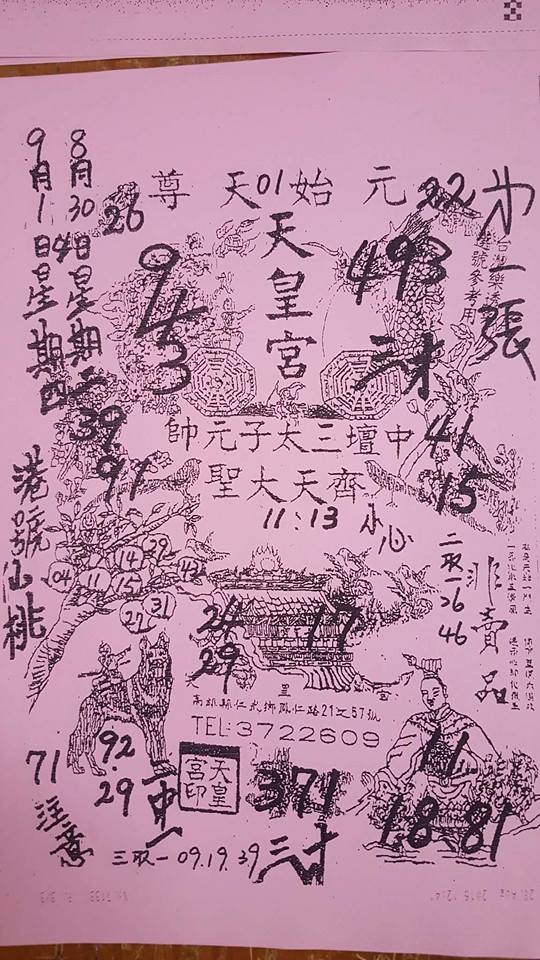 8月30日星期二
9月1日星期四
元始01天尊
22
26
天皇宮
9
4
3
493
三才
才一張
選號參考用
39
91
中壇三太子元帥
41
15
齊天大聖
11:13
小心
港號仙桃
04
11
14
15
29
42
22
31
二取一26
46
非賣品
24
29
17
高雄縣仁武鄉鳳仁路21之57號
TEL:3722609
天皇宮印
71
注意
92
29
中一
371
三才
11
18
81
三取一09.19.39